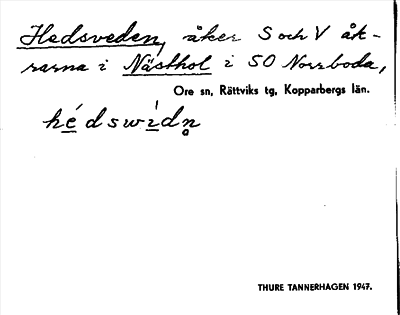 Hedsveden, åker S och V åk-
rarna i Nästhol i SO Norrboda,
Ore sn, Rättviks tg, Kopparbergs län.
hédswìdn̥
THURE TANNERHAGEN 1947.